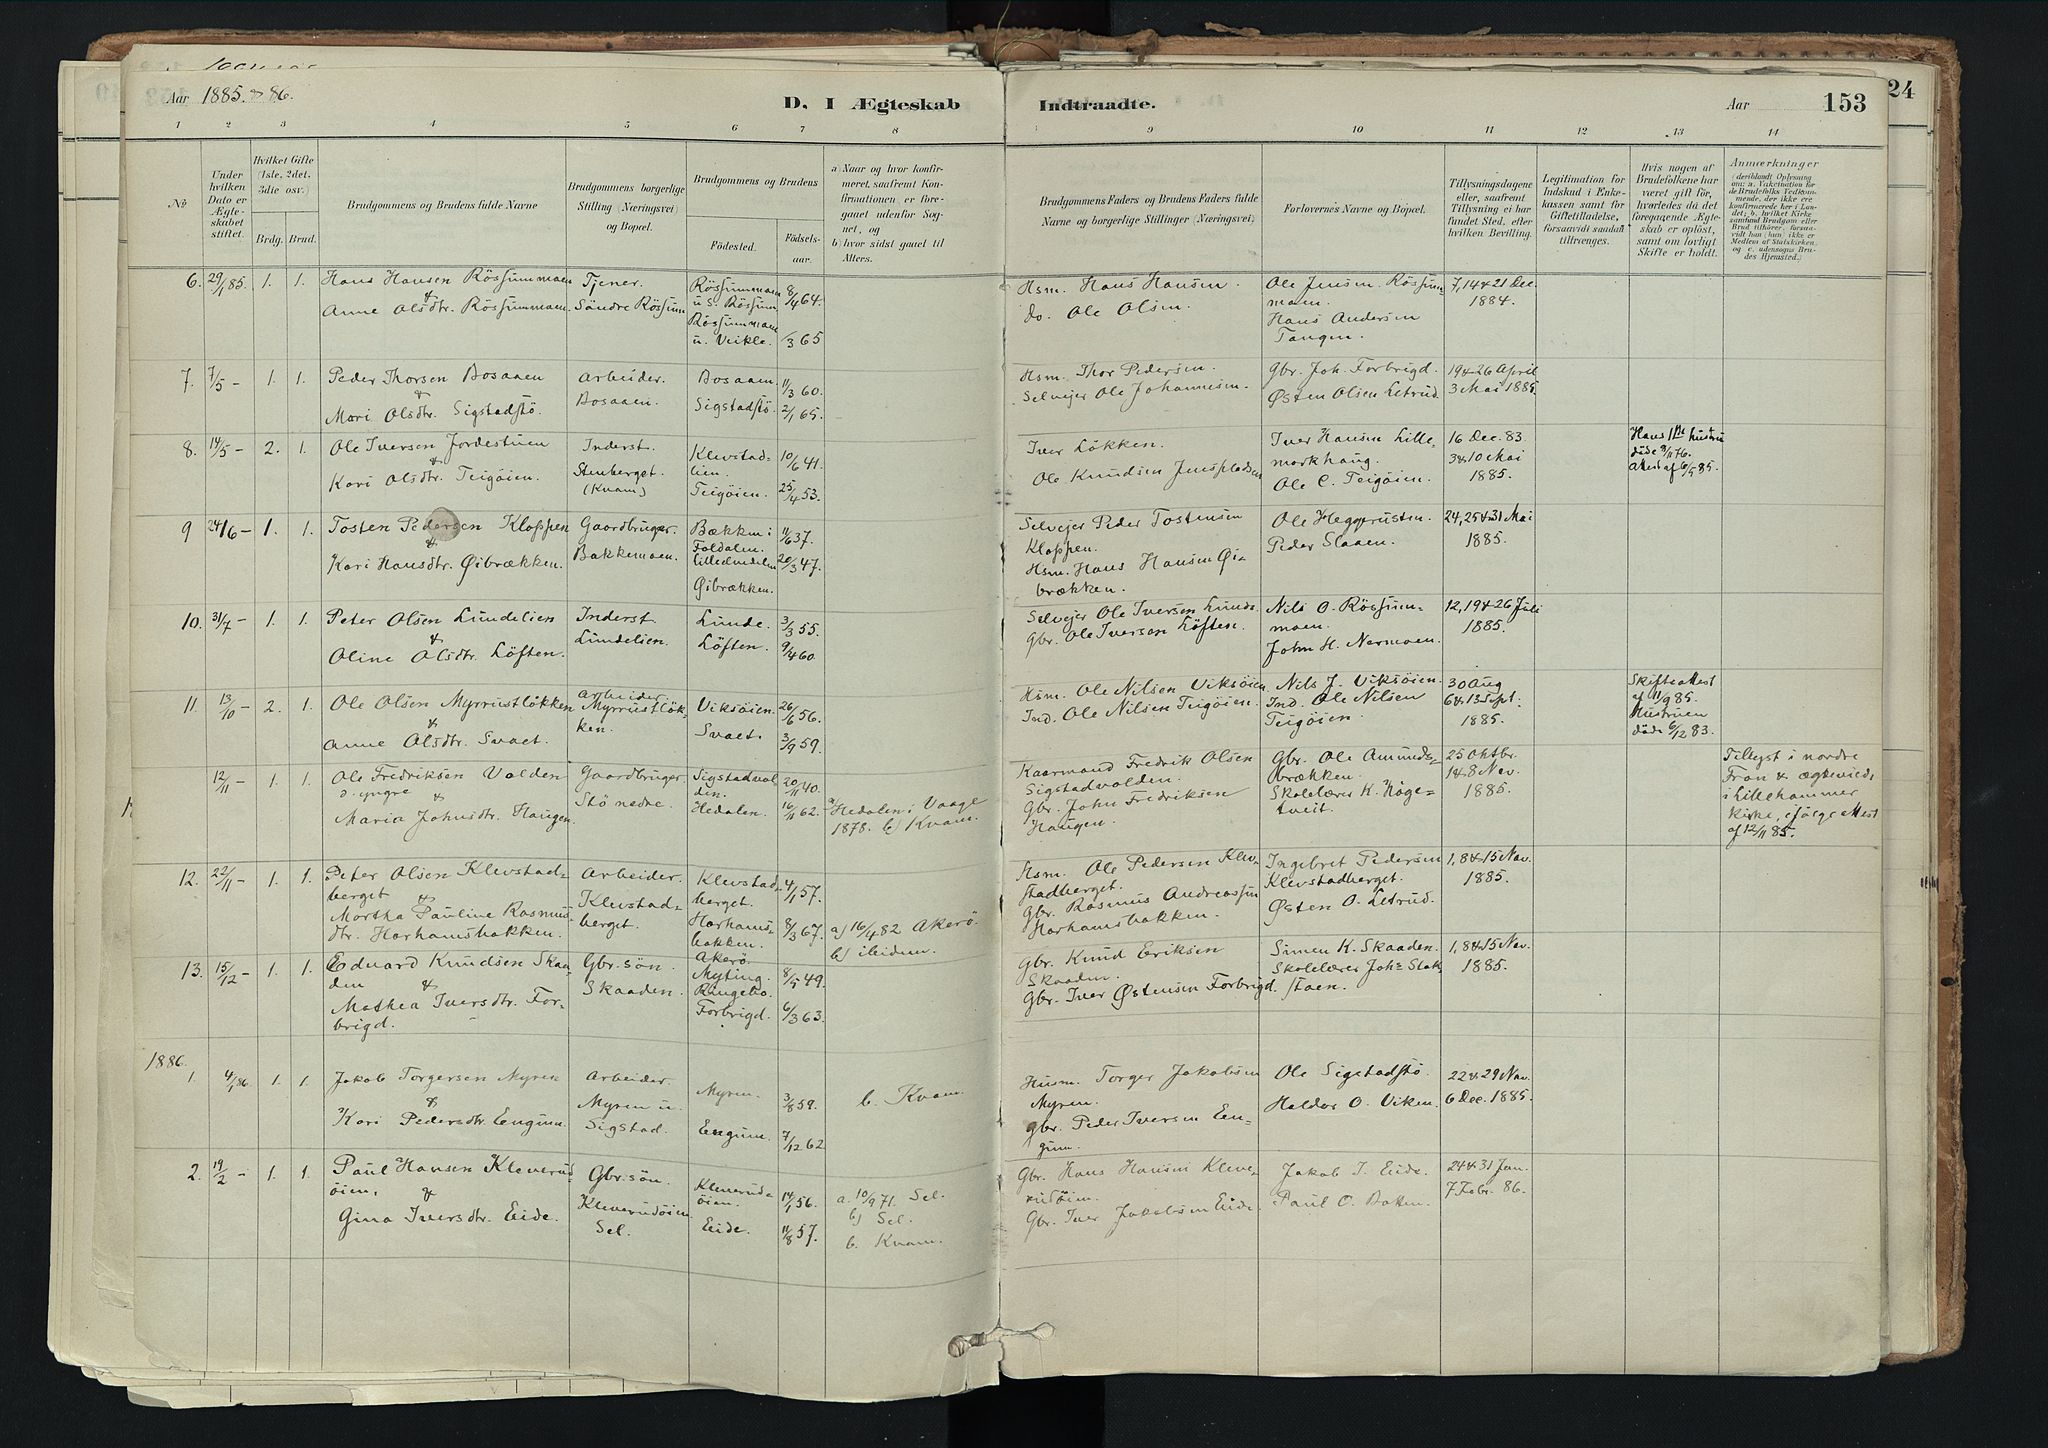 Aar 1885. & 86.
D. I Ægteskab
Indtraadte.
Aar
153
24
1 2 3 4 5 6 7 8 9 10 11 12 13 14
No
Under hvilken Dato er Ægteskabet stiftet.
Hvilket Gifte (1ste, 2det, 3die osv.)
Brdg. Brud.
Brudgommens og Brudens fulde Navne
Brudgommens borgerlige Stilling (Næringsvei) og Bopæl.
Brudgommens og Brudens
Fødested.
Fødselsaar.
a) Naar og hvor konfirmeret, saafremt Konfirmationen er foregaaet udenfor Sognet, og
b) hvor sidst gaaet til Alters.
Brudgommens Faders og Brudens Faders fulde Navne og borgerlige Stillinger (Næringsvei)
Forlovernes Navne og Bopæl.
Tillysningsdagene eller, saafremt Tillysning ei har fundet Sted, efter hvilken Bevilling.
Legitimation for Indskud i Enkekassen samt for Giftetilladelse, forsaavidt saadan tiltrænges.
Hvis nogen af Brudefolkene har været gift før, hvorledes da det foregaaende Ægteskab er opløst, samt om lovligt Skifte er holdt.
Anmærkninger (deriblandt Oplysning om: a. Vakcination for de Brudefolks Vedkommende, der ikke ere konfirmerede her i Landet; b. hvilket Kirkesamfund Brudgom eller Brud tilhører, forsaavidt han (hun) ikke er Medlem af Statskirken, og c. udensogns Brudes Hjemsted.)
6. 29/1 85. 1. 1.
Hans Hansen Rössummoen
&
Anne Olsdtr. Rössummoen.
Tjener.
Söndre Rössum
Rössummoen
u. S. Rössum.
Rössummoen
u. Veikle.
8/4 64.
/3 65
Hsm. Hans Hansen.
do. Ole Olsen.
Ole Jensen Rössum-
moen.
Hans Andersen
Tangen.
7, 14 & 21 Dec.
1884.
7. 7/5 – 1. 1.
Peder Thorsen Bosaaen
&
Mari Olsdtr. Sigstadstö.
Arbeider.
Bosaaen.
Bosaaen.
Sigstadstö.
11/3 60.
2/1 65.
Hsm. Thor Pedersen.
Selvejer Ole Johannesen.
Gbr. Joh. Forbrigd.
Østen Olsen Letrud.
19 & 26 April
3 Mai 1885.
8. 14/5 – 2. 1.
Ole Iversen Jordestuen
&
Kari Olsdtr. Teigöien.
Inderst.
Stenberget.
(Kvam)
Klevstad-
lien.
Teigöien.
10/6 41.
25/4 53.
Iver Løkken.
Ole Knudsen Jensplads
Iver Hansen Lille-
morkhaug.
Ole C. Teigöien.
16 Dec. 83.
3 & 10 Mai
1885.
Hans 1ste hustru
döde 3/11 76.
Attest af 6/5 85.
9 24/6 – 1. 1.
Tosten Pedersen Kloppen
&
Kari Hansdtr. Øibrækken.
Gaardbruger.
Bakkemoen.
Bækken i
Foldalen.
Lilleelvedalen
Øibrækken.
11/6 37.
20/3 47.
Selvejer Peder Tostensen
Kloppen.
Hsm. Hans Hansen Øi-
brækken.
Ole Heggerusten.
Peder Slaaen.
24, 25 & 31 Mai
1885.
10. 31/7 – 1. 1.
Peter Olsen Lundelien
&
Oline Olsdtr. Löften.
Inderst.
Lundelien.
Lunde.
Löften.
3/3 55.
9/4 60.
Selvejer Ole Iversen Lunde.
Gbr. Ole Iversen Löften.
Nils O. Rössum-
moen.
John H. Nermoen.
12, 19 & 26 Juli
1885.
11. 13/10 – 2. 1.
Ole Olsen Myrrustløkken
&
Anne Olsdtr. Svaet.
Arbeider
Myrrustløk-
ken.
Viksöien.
Svaet.
26/6 56.
3/9 59.
Hsm. Ole Nilsen Viksöien.
Ind. Ole Nilsen Teigöien.
Nils J. Viksöien.
Ind. Ole Nilsen
Teigöien.
30 Aug
6 & 13 Sept.
1885.
Skifteattest
af 11/9 85.
Hustruen
döde 6/12 83.
12/11 – 1. 1.
Ole Fredriksen Volden
d. yngre
&
Maria Johnsdtr. Haugen.
Gaardbruger.
Stö nedre.
Sigstadvol-
den.
Hedalen.
20/11 40.
16/11 62.
a) Hedalen i Vaage
1878. b) Kvam.
Kaarmand Fredrik Olsen
Sigstadvolden.
Gbr. John Fredriksen
Haugen.
Gbr. Ole Amunds-
brækken.
Skolelærer K. Høge-
tveit.
25 Oktbr.
1 & 8 Nov.
1885.
Tillyst i nordre
Fron & ægteviede
i Lillehammer
Kirke, ifölge attest
af 12/11 85.
12. 22/11 – 1. 1.
Peter Olsen Klevstad-
berget
&
Martha Pauline Rasmus-
dtr. Harhamsbakken.
Arbeider.
Klevstad-
berget.
Klevstad-
berget.
Harhams-
bakken.
Akerö
4/1 57.
8/3 67.
a) 16/4 82 Akerö.
b) ibidem.
Hsm. Ole Pedersen Klev-
stadberget.
Gbr. Rasmus Andreassen
Harhamsbakken.
Ingebret Pedersen
Klevstadberget.
Østen O. Letrud.
1, 8 & 15 Nov.
1885.
13. 15/12 – 1. 1.
Eduard Knudsen Skaa-
den
&
Mathea Iversdtr. For-
brigd.
Gbr. sön.
Skaaden.
Myting.
Ringebo.
Forbrigd.
8/5 49.
6/3 63.
Gbr. Knud Eriksen
Skaaden.
Gbr. Iver Østensen Forbrigd.
Simen K. Skaaden.
Skolelærer Johs Stok-
staen.
1, 8 & 15 Nov.
1885.
1886.
1. 4/1 86. 1. 1.
Jakob Torgersen Myren
&
Kari Pedersdtr. Engum.
Arbeider.
Myren u.
Sigstad.
Myren.
Engum.
3/8 59.
7/12 62
b. Kvam.
Husm. Torger Jakobsen
Myren.
Gbr. Peder Iversen En-
gum.
Ole Sigstadstö.
Haldor O. Viken.
22 & 29 Nov.
6 Dec. 1885.
2. 19/2 – 1. 1.
Paul Hansen Kleverud-
öien.
&
Gina Iversdtr. Eide.
Gbr. sön.
Kleverudöien
Sel.
Kleverud-
öien.
Eide.
14/1 56.
11/8 57.
a. 10/9 71. Sel.
b) Sel.
b. Kvam.
Gbr. Hans Hansen Kleve-
rudöien.
Gbr. Iver Jakobsen Eide.
Jakob I. Eide.
Paul O. Bakken.
24 & 31 Jan.
7 Febr. 86.